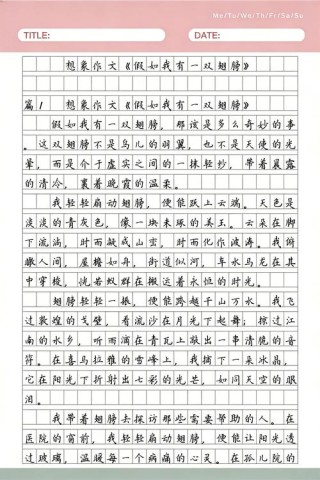 Me/Tu/We/Th/Fr/Sa/Su
TITLE:
DATE:
想象作文《假如我有一双翅膀》
篇1 想象作文《假如我有一双翅膀》
假如我有一双翅膀，那该是多么奇妙的事
。这双翅膀不是鸟儿的羽翼，也不是天使的光
晕，而是介于虚实之间的一抹轻纱，带着晨露
的清冷，裹着晚霞的温柔。
我轻轻扇动翅膀，便能跃上云端。天色是
淡淡的青灰色，像一块未琢的美玉。云朵在脚
下流淌，时而皱成山峦，时而化作波涛。我俯
瞰人间，屋檐如舟，街道似河，车水马龙在其
中穿梭，恍若蚁群在搬运着永恒的时光。
翅膀轻轻一振，便能跨越千山万水。我飞
过敦煌的戈壁，看流沙在月光下起舞；掠过江
南的水乡，听雨滴在青瓦上敲出一串清脆的音
符。在喜马拉雅的雪峰上，我摘下一朵冰晶，
它在阳光下折射出七彩的光芒，如同天空的眼
泪。
我带着翅膀去探访那些需要帮助的人。在
医院的窗前，我轻轻扇动翅膀，便能让阳光透
过玻璃，温暖每一个病痛的心灵。在孤儿院的